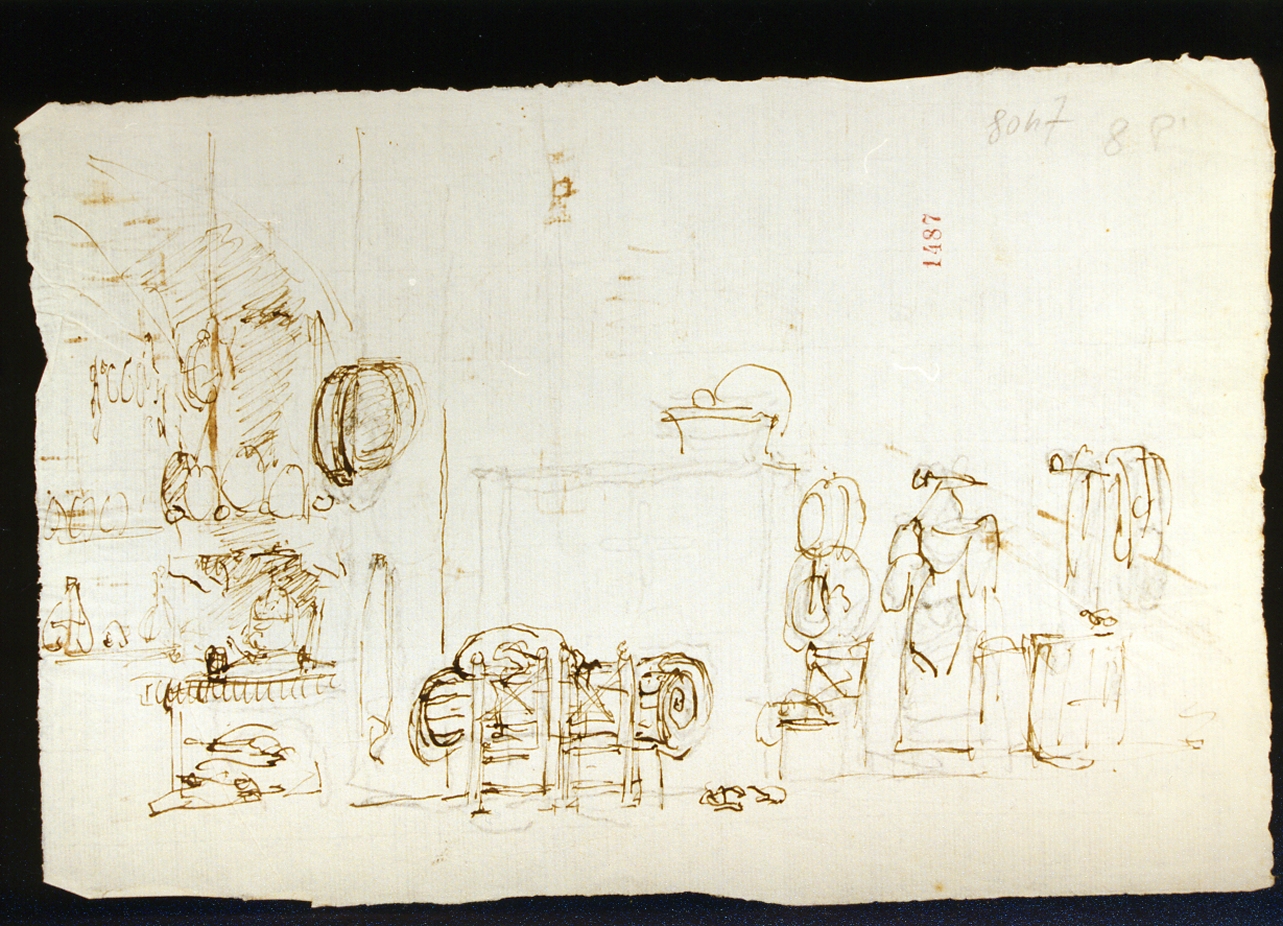 8047
1487